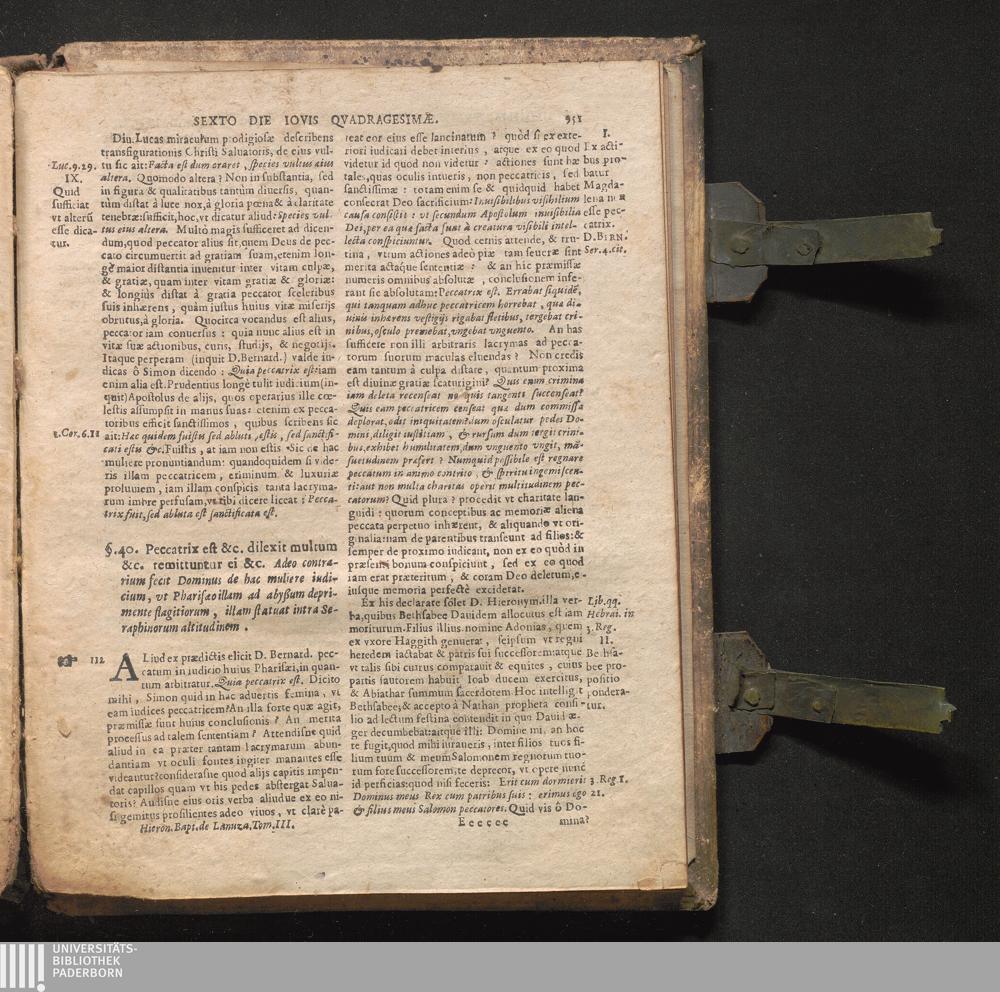 SEXTO DIE IOVIS QVADRAGESIMÆ. 951
Diu. Lucas miraculum prodigiosæ describens
transfigurationis Christi Saluatoris, de eius vul-
Luc. 9. 29. tu sic ait: Facta est dum oraret, species vultus eius
IX. altera. Quomodo altera? Non in substantia, sed
Quid in figura & qualitatibus tantùm diuersis, quan-
sufficiat tùm distat à luce nox, à gloria pœna & à claritate
vt alterũ tenebræ: sufficit, hoc, vt dicatur aliud: Species vul-
esse dica- tus eius altera. Multò magis sufficeret ad dicen-
tur. dum, quod peccator alius sit, quem Deus de pec-
cato circumuertit ad gratiam suam, etenim lon-
gè maior distantia inuenitur inter vitam culpæ,
& gratiæ, quam inter vitam gratiæ & gloriæ:
& longiùs distat à gratia peccator sceleribus
suis inhærens, quàm iustus huius vitæ miserijs
obrutus, à gloria. Quocirca vocandus est alius,
peccator iam conuersus: quia nunc alius est in
vitæ suæ actionibus, curis, studijs, & negotijs.
Itaque perperam (inquit D. Bernard.) valde iu-
dicas ô Simon dicendo: Quia peccatrix est: iam
enim alia est. Prudentius longè tulit iudicium (in-
quit) Apostolus de alijs, quos operarius ille cœ-
lestis assumpsit in manus suas: etenim ex pecca-
toribus efficit sanctissimos, quibus scribens sic
1. Cor. 6. 11 ait: Hæc quidem fuistis sed abluti estis, sed sanctifi-
cati estis &c. Fuistis, at iam non estis. Sic de hac
muliere pronuntiandum: quandoquidem si vide-
ris illam peccatricem, criminum & luxuriæ
proluuiem, iam illam conspicis tanta lacryma-
rum imbre perfusam, vt tibi dicere liceat: Pecca-
trix fuit, sed abluta est sanctificata est.
§. 40. Peccatrix est &c. dilexit multum
&c. remittuntur ei &c. Adeo contra-
rium fecit Dominus de hac muliere iudi-
cium, vt Pharisæo illam ad abyßum depri-
mente flagitiorum, illam statuat intra Se-
raphinorum altitudinem.
112 ALiud ex prædictis elicit D. Bernard. pec-
catum in iudicio huius Pharisæi, in quan-
tum arbitratur. Quia peccatrix est. Dicito
mihi, Simon quid in hac aduertis femina, vt
eam iudices peccatricem? An illa forte quæ agit,
præmissæ sunt huius conclusionis? An merita
processus ad talem sententiam? Attendisne quid
aliud in ea præter tantam lacrymarum abun-
dantiam vt oculi fontes ingiter manantes esse
videantur? considerasne quod alijs capitis impen-
dat capillos quam vt his pedes abstergat Salua-
toris? Audisne eius oris verba aliudue ex eo ni-
si gemitus prosilientes adeo viuos, vt clarè pa-
Hieron. Bapt. de Lanuza. Tom. III.
teat cor eius esse lancinatum? quòd si ex exte-
riori iudicari debet interius, atque ex eo quod
videtur id quod non videtur? actiones sunt hæ
tales, quas oculis intueris, non peccatricis, sed
sanctissimæ: totam enim se & quidquid habet
consecrat Deo sacrificium: Inuisibilibus visibilium
causa consistit: vt secundum Apostolum inuisibilia
Dei, per ea quæ facta sunt à creatura visibili intel-
lecta conspiciuntur. Quod cernis attende, & tru-
tina, vtrum actiones adeò piæ tam seueræ sint
merita actæque sententiæ? & an hic præmissæ
numeris omnibus absolutæ, conclusionem infe-
rant sic absolutam: Peccatrix est. Errabat siquidẽ,
qui tanquam adhuc peccatricem horrebat, quæ di-
uinis inhærens vestigijs rigabat fletibus, tergebat cri-
nibus, osculo premebat, vngebat vnguento. An has
sufficere non illi arbitraris lacrymas ad pecca-
torum suorum maculas eluendas? Non credis
eam tantum à culpa distare, quantum proxima
est diuinæ gratiæ scaturigini? Quis enim crimina
iam deleta recenseat ne quis tangenti succenseat?
Quis eam peccatricem censeat quæ dum commissa
deplorat, odit iniquitatem? dum osculatur pedes Do-
mini, diligit iustitiam, & rursum dum tergit crini-
bus, exhibet humilitatem, dum vnguento vngit, mã-
suetudinem præfert? Numquid possibile est regnare
peccatum in animo contrito, & spiritu ingemiscen-
ti: aut non multa charitas operit multitudinem pec-
catorum? Quid plura? procedit vt charitate lan-
guidi: quorum conceptibus ac memoriæ aliena
peccata perpetuo inhærent, & aliquando vt ori-
ginalia: nam de parentibus transeunt ad filios: &
semper de proximo iudicant, non ex eo quòd in
præsenti bonum conspiciunt, sed ex eo quod
iam erat præteritum, & coram Deo deletum, e-
iusque memoria perfectè exciderat.
Ex his declarate solet D. Hieronym. illa ver-
ba, quibus Bethsabee Dauidem allocutus est iam
moriturum. Filius illius nomine Adonias, quem
ex vxore Haggith genuerat, seipsum vt regni
heredem iactabat & patris sui successorem: atque
vt talis sibi currus comparauit & equites, cuius
partis fautorem habuit Ioab ducem exercitus,
& Abiathar summum sacerdotem. Hoc intelligit
Bethsabee; & accepto à Nathan propheta consi-
lio ad lectum festina contendit in quo Dauid æ-
ger decumbebat: aitque illi: Domine mi, an hoc
te fugit, quod mihi iuraueris, inter filios tuos fi-
lium tuum & meum Salomonem regnorum tuo-
rum fore successorem, te deprecor, vt opere nunc
id perficias: quod nisi feceris: Erit cum dormierit
Dominus meus Rex cum patribus suis: erimus ego
& filius meus Salomon peccatores. Quid vis ô Do-
Eeeeee mina?
I.
Ex acti-
bus pro-
batur
Magda-
lena non
esse pec-
catrix.
D. BERN.
Ser. 4. cit.
Lib. qq.
Hebrai. in
3. Reg.
II.
Bethsa-
bee pro-
positio
pondera-
tur.
3. Reg. 1.
21.
UNIVERSITÄTS-
BIBLIOTHEK
PADERBORN